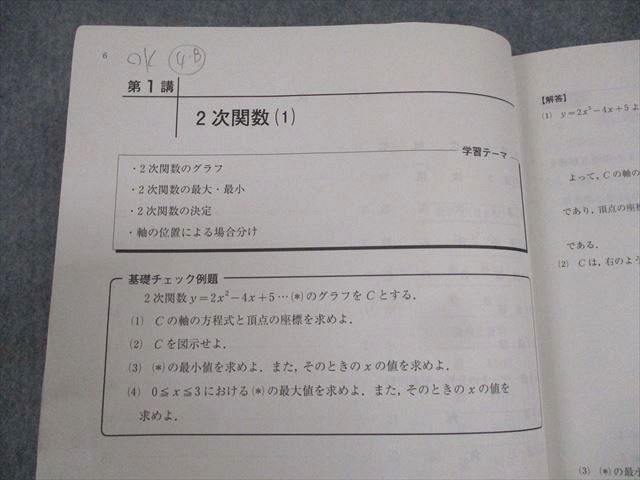 6
OK 4·B
第1講
2次関数(1)
学習テーマ
・2次関数のグラフ
・2次関数の最大・最小
・2次関数の決定
・軸の位置による場合分け
基礎チェック例題
2次関数 y=2x²−4x+5…(*)のグラフをCとする.
(1) Cの軸の方程式と頂点の座標を求めよ.
(2) Cを図示せよ.
(3) (*)の最小値を求めよ. また, そのときのxの値を求めよ.
(4) 0≦x≦3における(*)の最大値を求めよ. また, そのときのxの値を
求めよ.
【解答】
(1) y=2x²−4x+5よ
よって, Cの軸の
であり, 頂点の座標
である.
(2) Cは, 右のよう
(3) (*)の最小